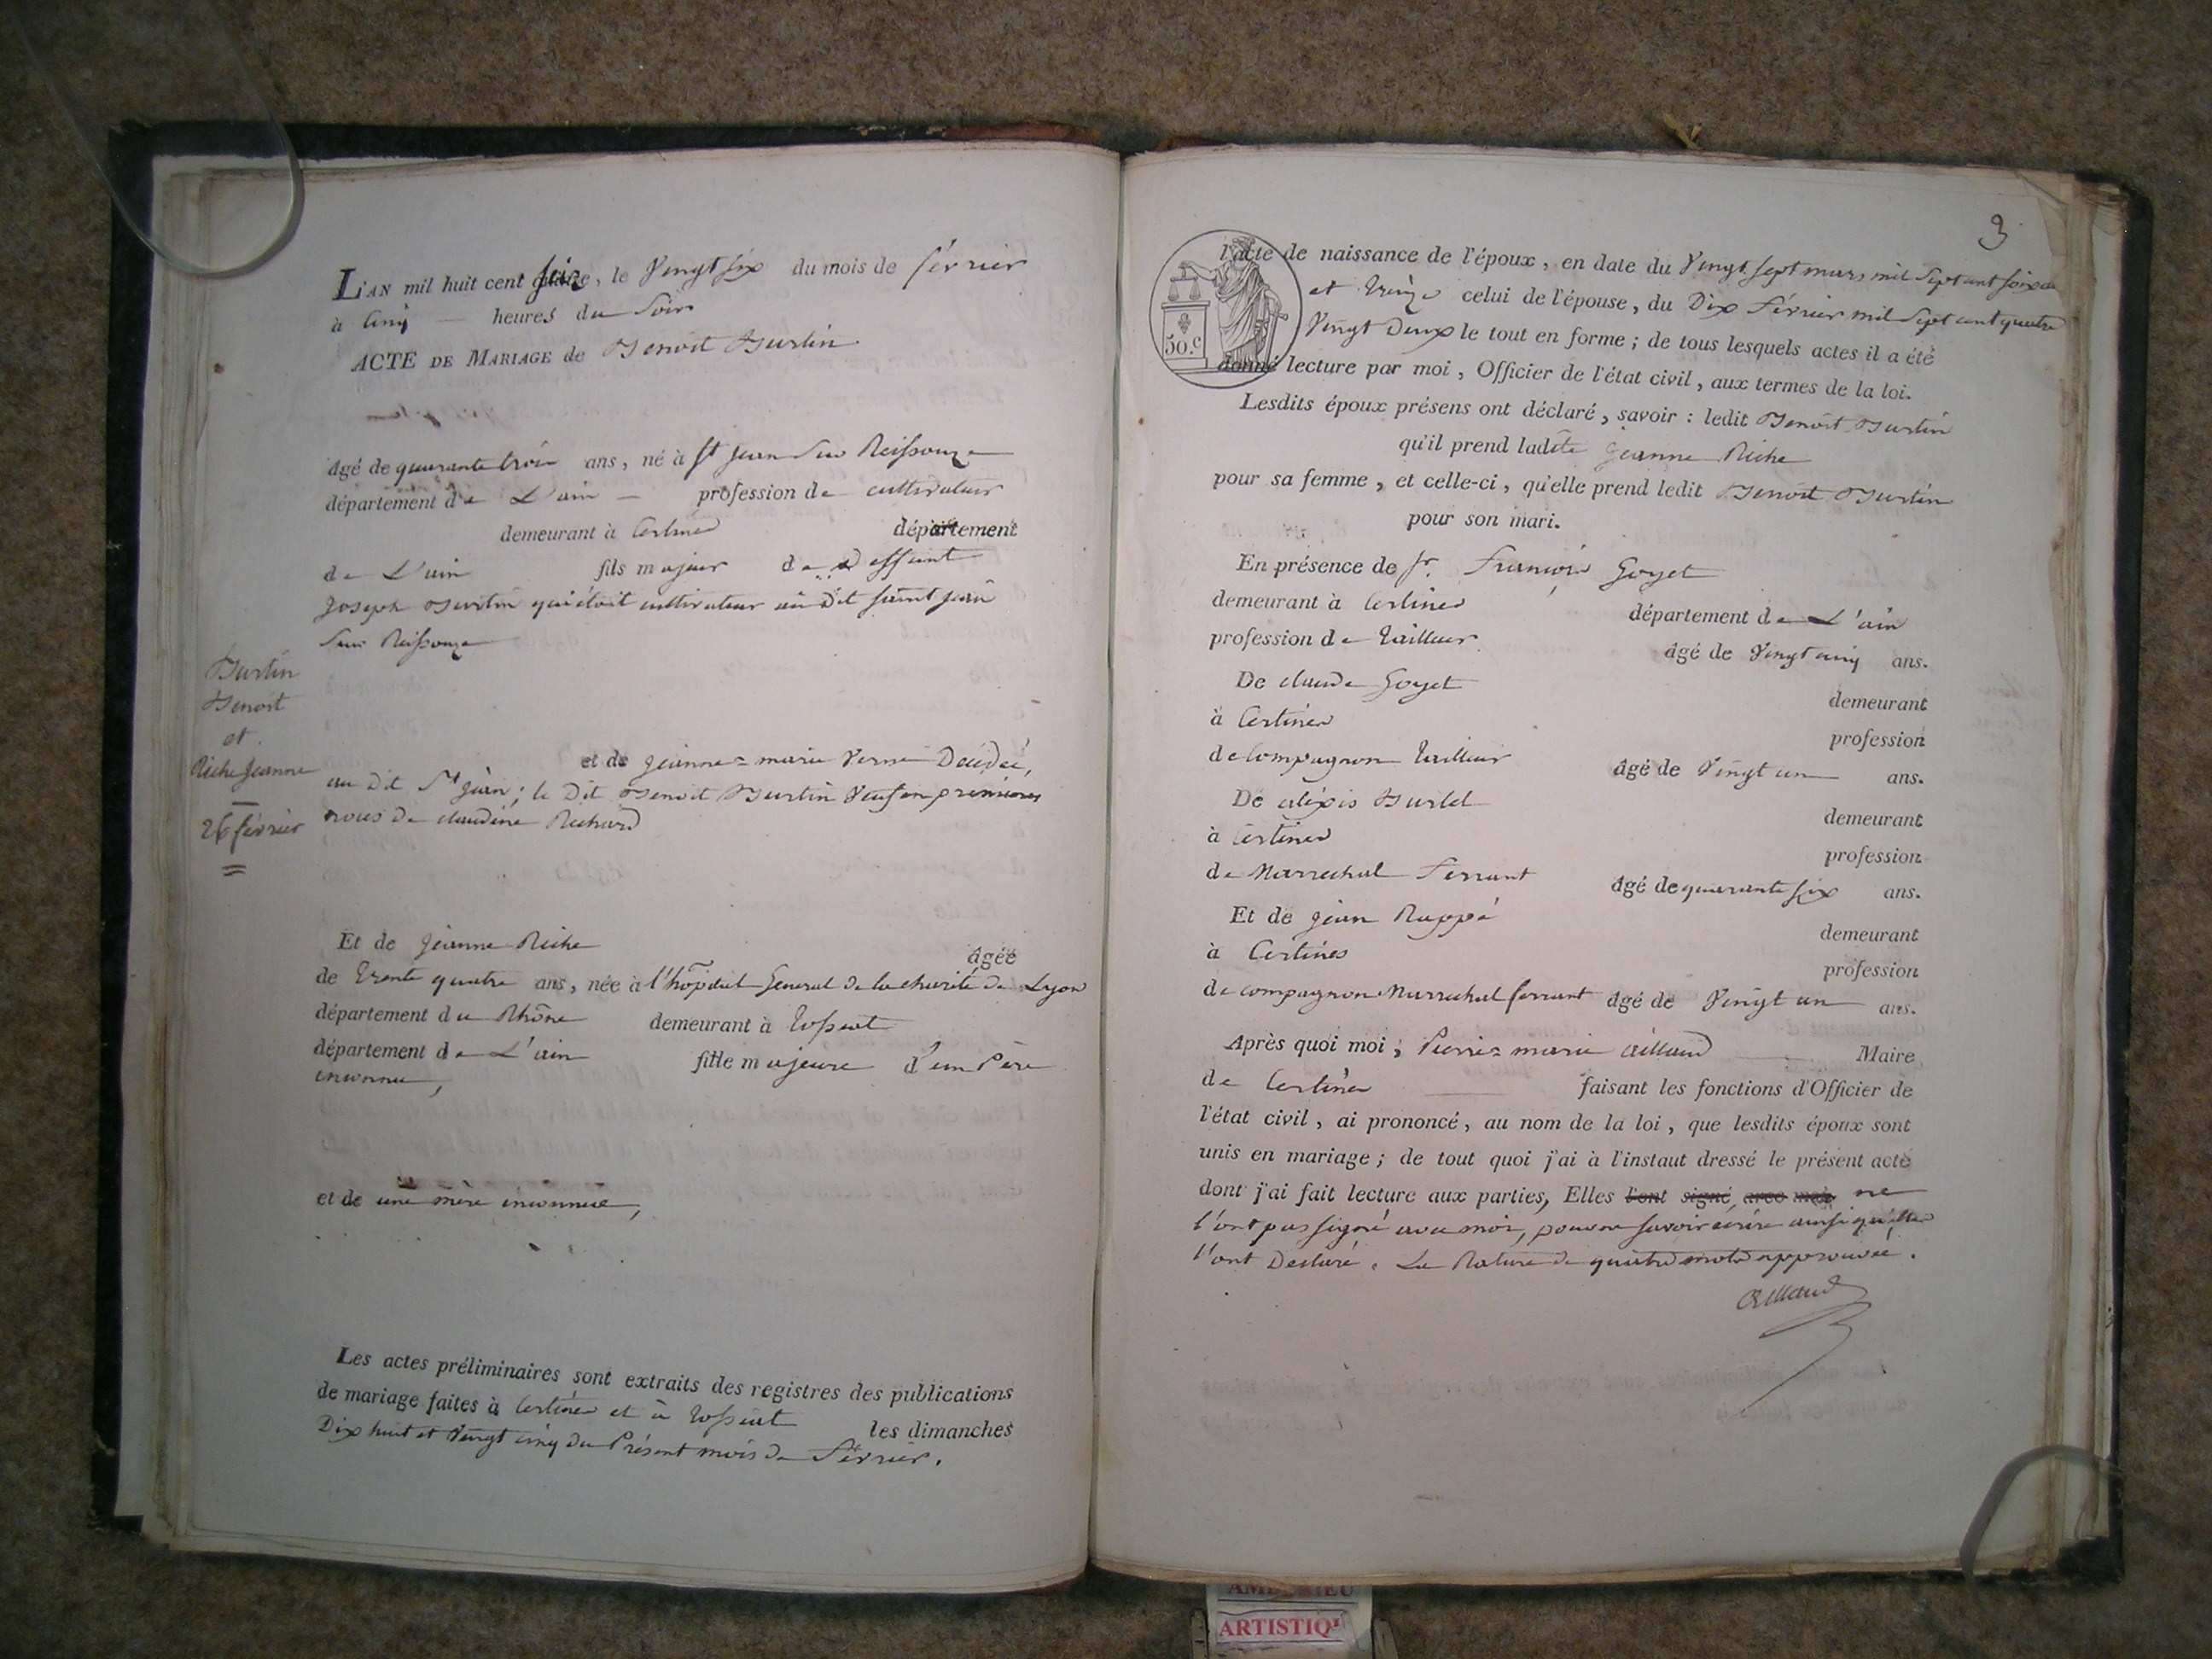 L'AN mil huit cent seize, le Vingt six du mois de février
à Cinq heures du Soir
ACTE DE MARIAGE de Benoit Burtin
âgé de quarante trois ans, né à St jean Sur Reissouze
département de L'ain profession de cultivateur
demeurant à Certines département
de L'ain fils majeur de deffunt
Joseph Burtin qui étoit cultivateur au Dit saint jean
Sur Reissouze
Burtin
Benoit
et
Riche Jeanne
26 février
et de jeanne-marie Verne Decidée,
au Dit St jean; le Dit Benoit Burtin Veuf en premieres
noces de claudine Richard
Et de jeanne Riche âgée
de trente quatre ans, née à l'hôpital General de la charité de Lyon
département du Rhône demeurant à Tossiat
département de L'ain fille majeure d'un Père
inconnu,
et de une mère inconnue,
Les actes préliminaires sont extraits des registres des publications
de mariage faites à Certines et à Tossiat les dimanches
Dix huit et Vingt cinq du Présent mois de Février.
3
50.c
l'acte de naissance de l'époux, en date du Vingt sept mars mil sept cent soixante
et treize celui de l'épouse, du Dix Février mil sept cent quatre
Vingt Deux le tout en forme; de tous lesquels actes il a été
donné lecture par moi, Officier de l'état civil, aux termes de la loi.
Lesdits époux présens ont déclaré, savoir: ledit Benoit Burtin
qu'il prend ladite jeanne Riche
pour sa femme, et celle-ci, qu'elle prend ledit Benoit Burtin
pour son mari.
En présence de sr. François Goyet
demeurant à Certines département de L'ain
profession de tailleur âgé de Vingt cinq ans.
De claude Goyet demeurant
à Certines profession
de compagnon tailleur âgé de Vingt un ans.
De alexis Burlet demeurant
à Certines profession
de Marrechal Ferrant âgé de quarante six ans.
Et de jean Rappé demeurant
à Certines profession
de compagnon Marrechal ferrant âgé de Vingt un ans.
Après quoi moi, Pierre-marie Aillaud Maire
de Certines faisant les fonctions d'Officier de
l'état civil, ai prononcé, au nom de la loi, que lesdits époux sont
unis en mariage; de tout quoi j'ai à l'instaut dressé le présent acte
dont j'ai fait lecture aux parties, Elles l'ont signé avec moi, ne
l'ont pas signé avec moi, pour ne savoir écrire ainsi qu'elles
l'ont Declaré. La Rature de quatre mots approuvée.
Aillaud
ARTISTIQ